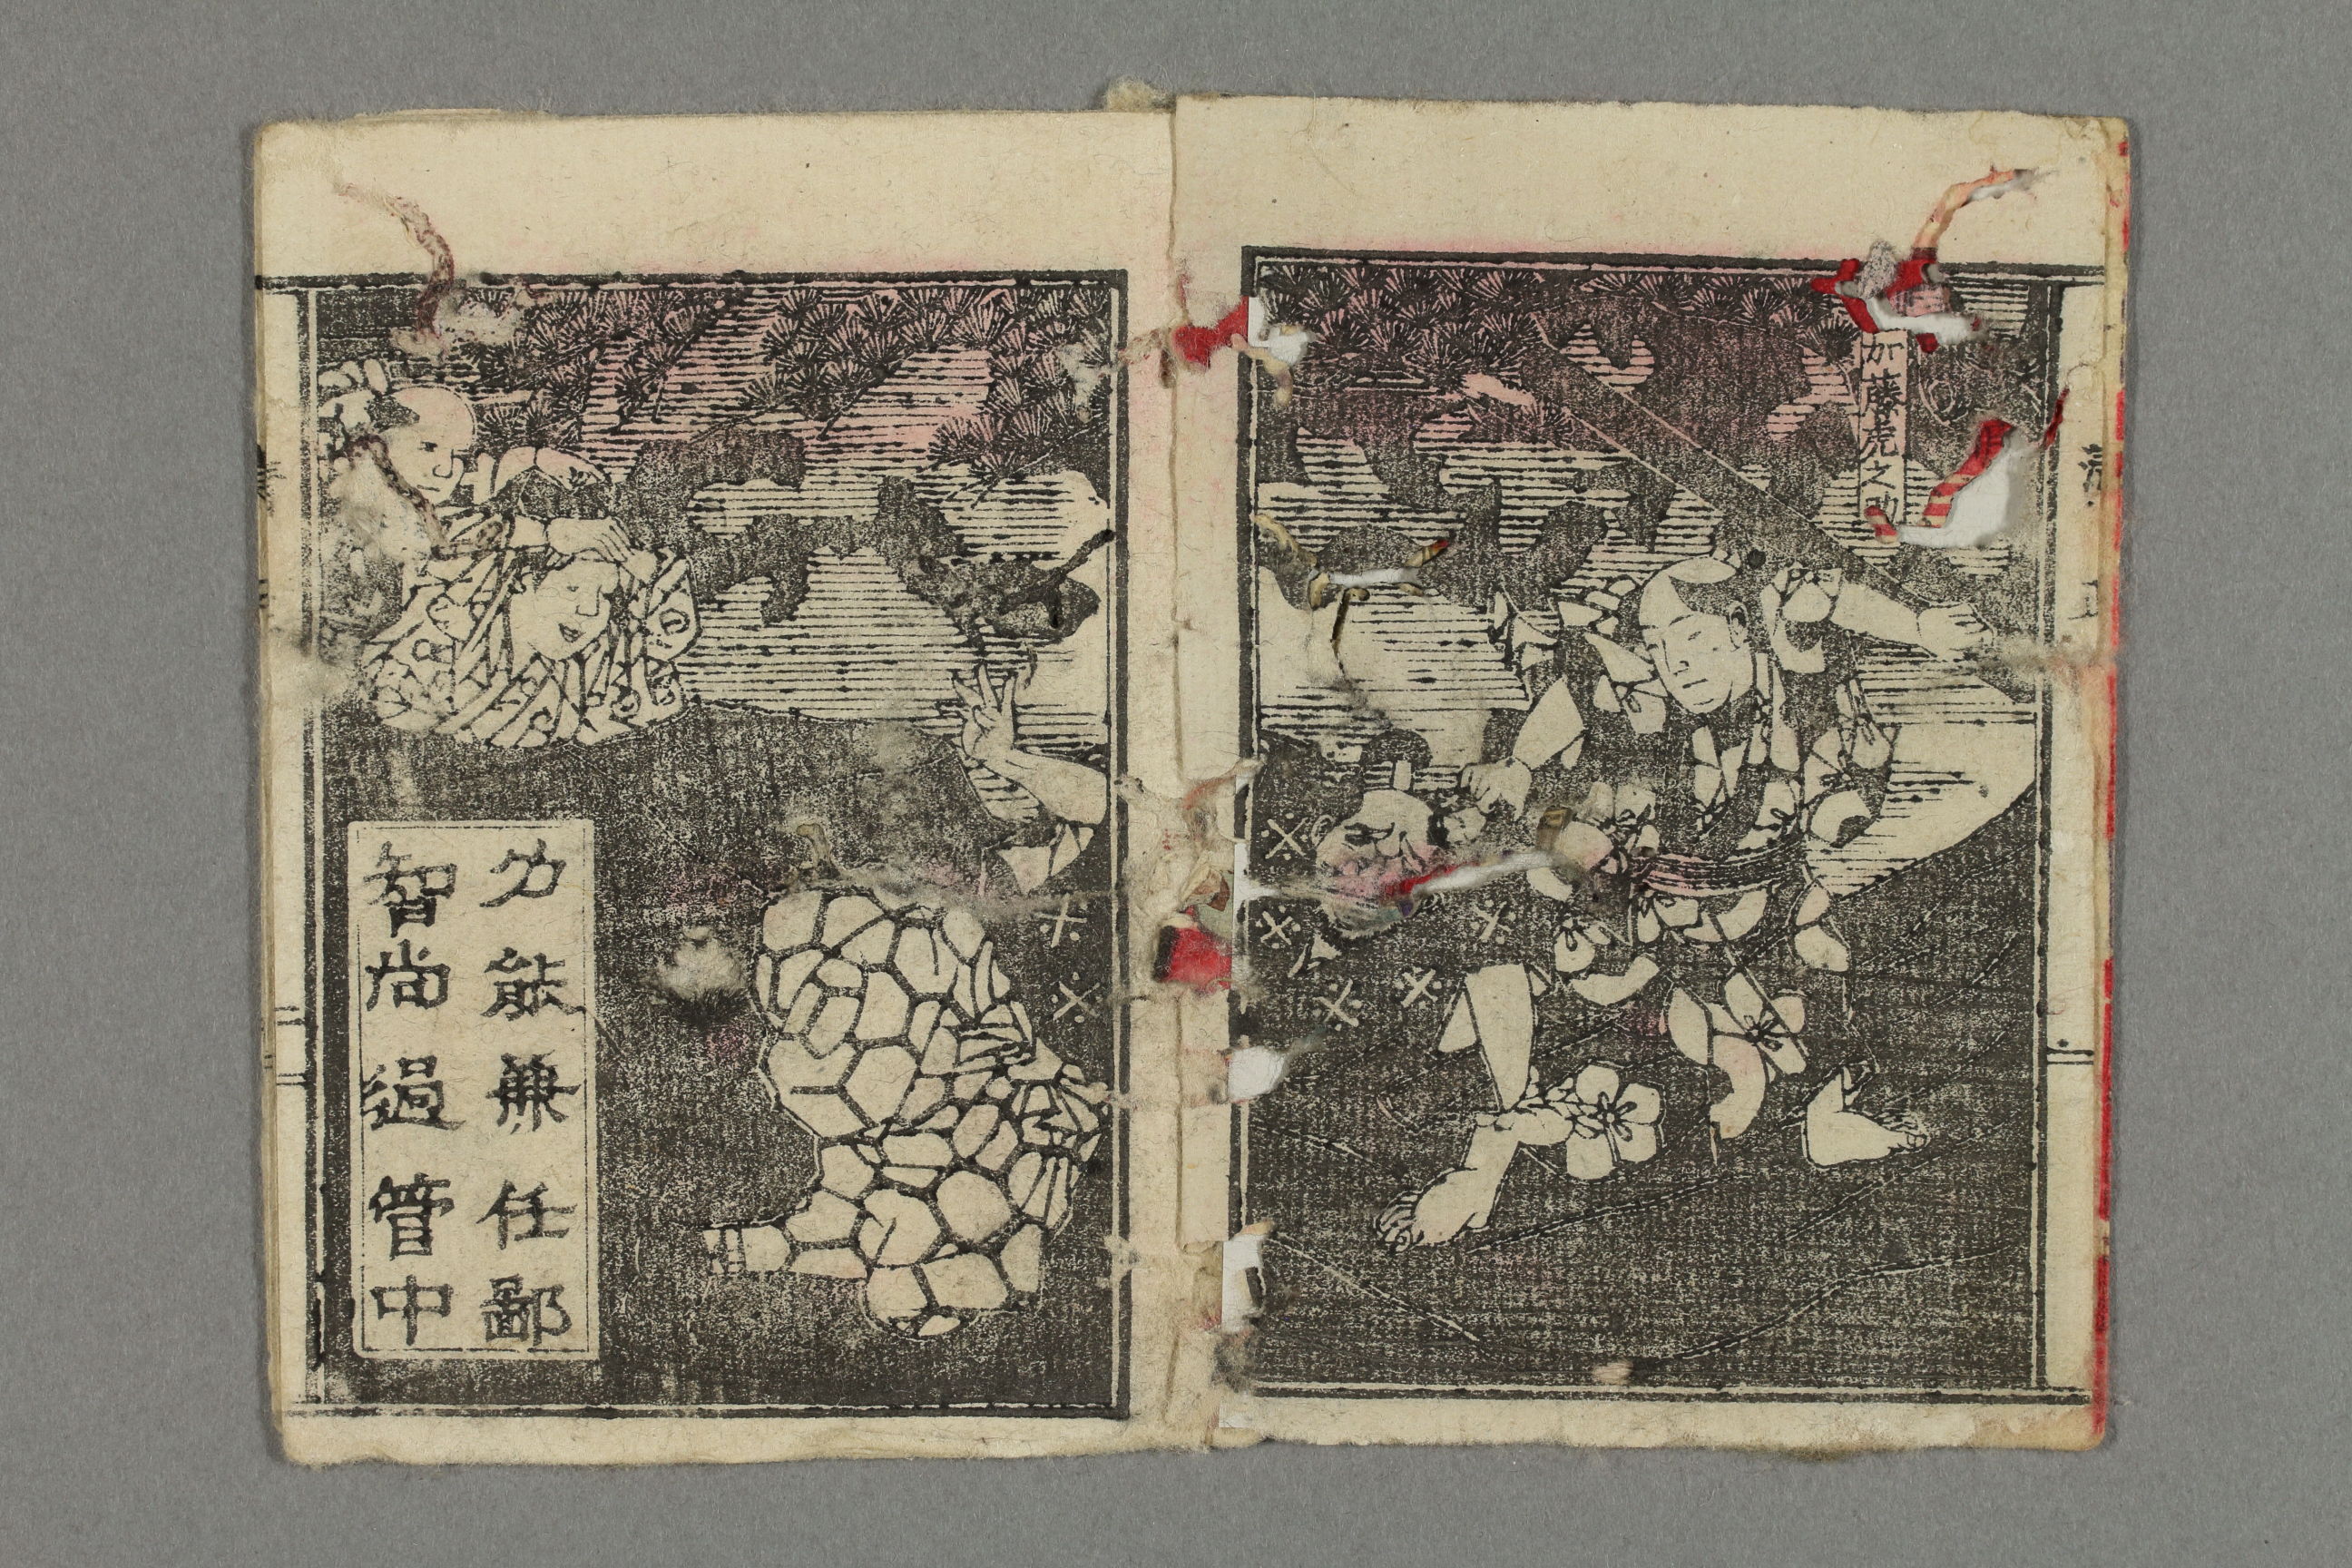 加藤虎之助
力能兼任鄙
智尚過管中